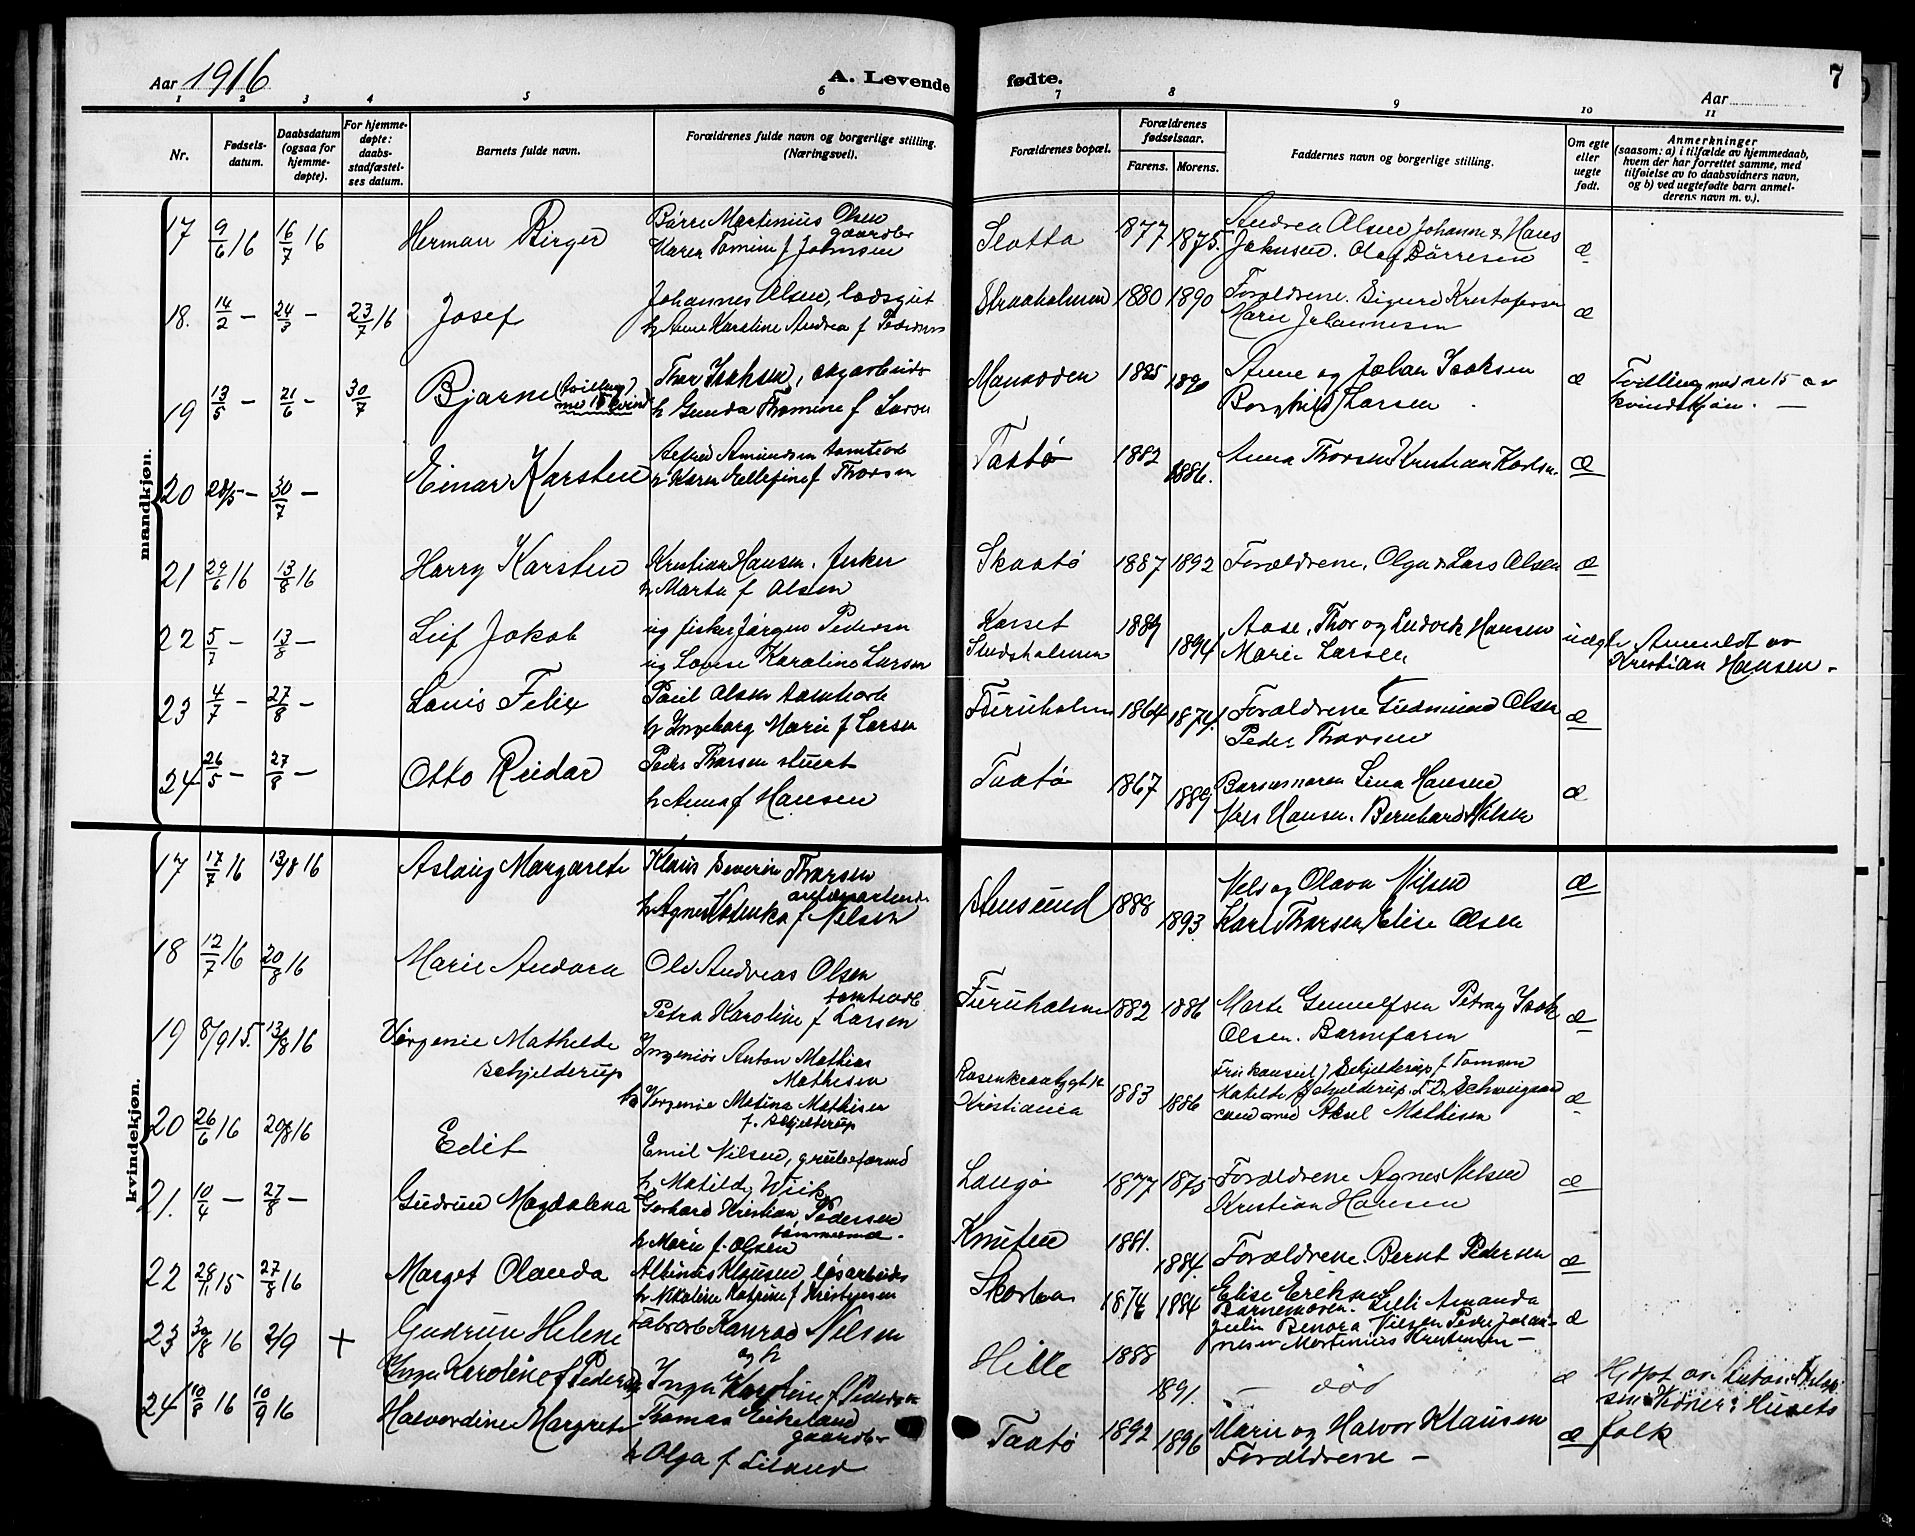 Aar 1916
A. Levende fødte.
7
Aar
1 2 3 4 5 6 7 8 9 10 11
Nr.
Fødsels-
datum.
Daabsdatum
(ogsaa for
hjemme-
døpte).
For hjemme-
døpte:
daabs-
stadfæstel-
ses datum.
Barnets fulde navn.
Forældrenes fulde navn og borgerlige stilling.
(Næringsvei).
Forældrenes bopæl.
Forældrenes
fødselsaar.
Farens. Morens.
Faddernes navn og borgerlige stilling.
Om egte
eller
uegte
født.
Anmerkninger
(saasom: a) i tilfælde av hjemmedaab,
hvem der har forrettet samme, med
tilføielse av to daabsvidners navn,
og b) ved uegtefødte barn anmel-
derens navn m. v.).
mandkjøn.
17 9/6 16 16/7 16 Herman Birger Børre Martinius Olsen gaardbr Slotta 1877 1875. Andrea Olsen Johanne & Hans æ
Karen Tomine f Johnsen Jakobsen. Olaf Børresen
18. 14/2 – 24/3 – 23/7 16 Josef Johannes Olsen, lodsgut Straaholmen 1880 1890 Forældrene. Sigurd Kristofersen æ
h Anne Karstine Andrea f Marie Johannesen
19 13/5 – 21/6 – 30/7 Bjarne (tvilling Thor Isaksen, 1890 Anne og Johan Isaksen æ Tvilling med nr 15 av
h Gunda Thomine f Larsen Borghild Larsen kvindekjøn. –
20 28/5 – 30/7 – Einar Karsten Alfred Amundsen tomtearb Taatø 1882 1886. Anna Thorsen Kristian Karlsen æ
h Karen Ellefine f Thorsen
21 29/6 16 13/8 16 Harry Karsten Kristian Hansen, fisker Skaatø 1887 1892 Forældrene, Olga & Lars Olsen æ
h Marta f Olsen
22 5/7 – 13/8 – Leif Jakob ug fisker Jørgen Pedersen 1889 1894 Aase, Thor og Ludvik Hansen uægte Anmeldt av
ug Lovise Karoline Larsen Marie Larsen Kristian Hansen –
23 4/7 – 27/8 – Louis Felix Paul Olsen tomtearb Furuholmen 1864 1874 Forældrene Gudmund Olsen æ
h Ingeborg Marie f Larsen Peder Thorsen
24 26/5 – 27/8 – Otto Reidar Peder Thorsen stuert Taatø 1867 1889 Barnemoren Lina Hansen æ
h Anna f Hansen Nils Hansen. Bernhard Nilsen
kvindekjøn.
17 17/7 16 13/8 16 Aslaug Margarete Klaus Severin Thorsen Stensund 1888 1893 Nils og Olava Nilsen æ
h Agnes f Nilsen Karl Thorsen Elise Olsen
18 12/7 16 20/8 16 Marie Andora Ole Andreas Olsen tomtearb Furuholmen 1882 1886 Marte Gunnulfsen Petra Isak æ
Petra Karoline f Larsen Olsen. Barnefaren
19 8/9 15. 13/8 16 Vergenie Mathilde Schjelderup Ingeniør Anton Mathias Mathisen Kristiania 1883 1886 Fru konsul Schjelderup f Tomsen æ
h Vergenie Matina Mathisen f. Schjelderup cand med Aksel Mathisen
20 26/6 16 20/8 16 Edit Emil Nilsen, grubeformd Langø 1877 1875 Forældrene Agnes Nilsen æ
h Matilde Wiik Kristian Hansen
21. 10/4 – 27/8 – Gudrun Magdalena Gerhard Kristian Pedersen tømmermd – Knuten 1881. 1884. Forældrene. Bernt Pedersen æ
h Marie f. Olsen
22 28/11 15 27/8 16 Marget Olanda Albinus Klausen løsarbeider 1876 1884 Elise Eriksen Barnemoren. Lilli Amanda æ
h Nikoline Katrine f Kristensen Julie Benora Nilsen Peder Johan-
nesen Martinius Kristensen –
23 30/8 16 2/9 + Gudrun Helene Fabrarb Konrad Nilsen Hille 1888 1891. – død æ Hjdpt av
og h Inga Karoline f Pedersen
Inga Karoline f Pedersen
24 10/8 16 10/9 16 Halvordine Margrete Thomas Eikeland gaardbr Taatø 1892 1896 Marie og Halvor Klausen æ folk
h Olga f Liland Forældrene –